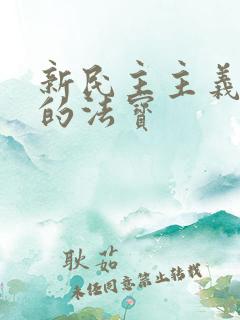 新民主主義
的法寶
耿茹
未任同意禁止转载